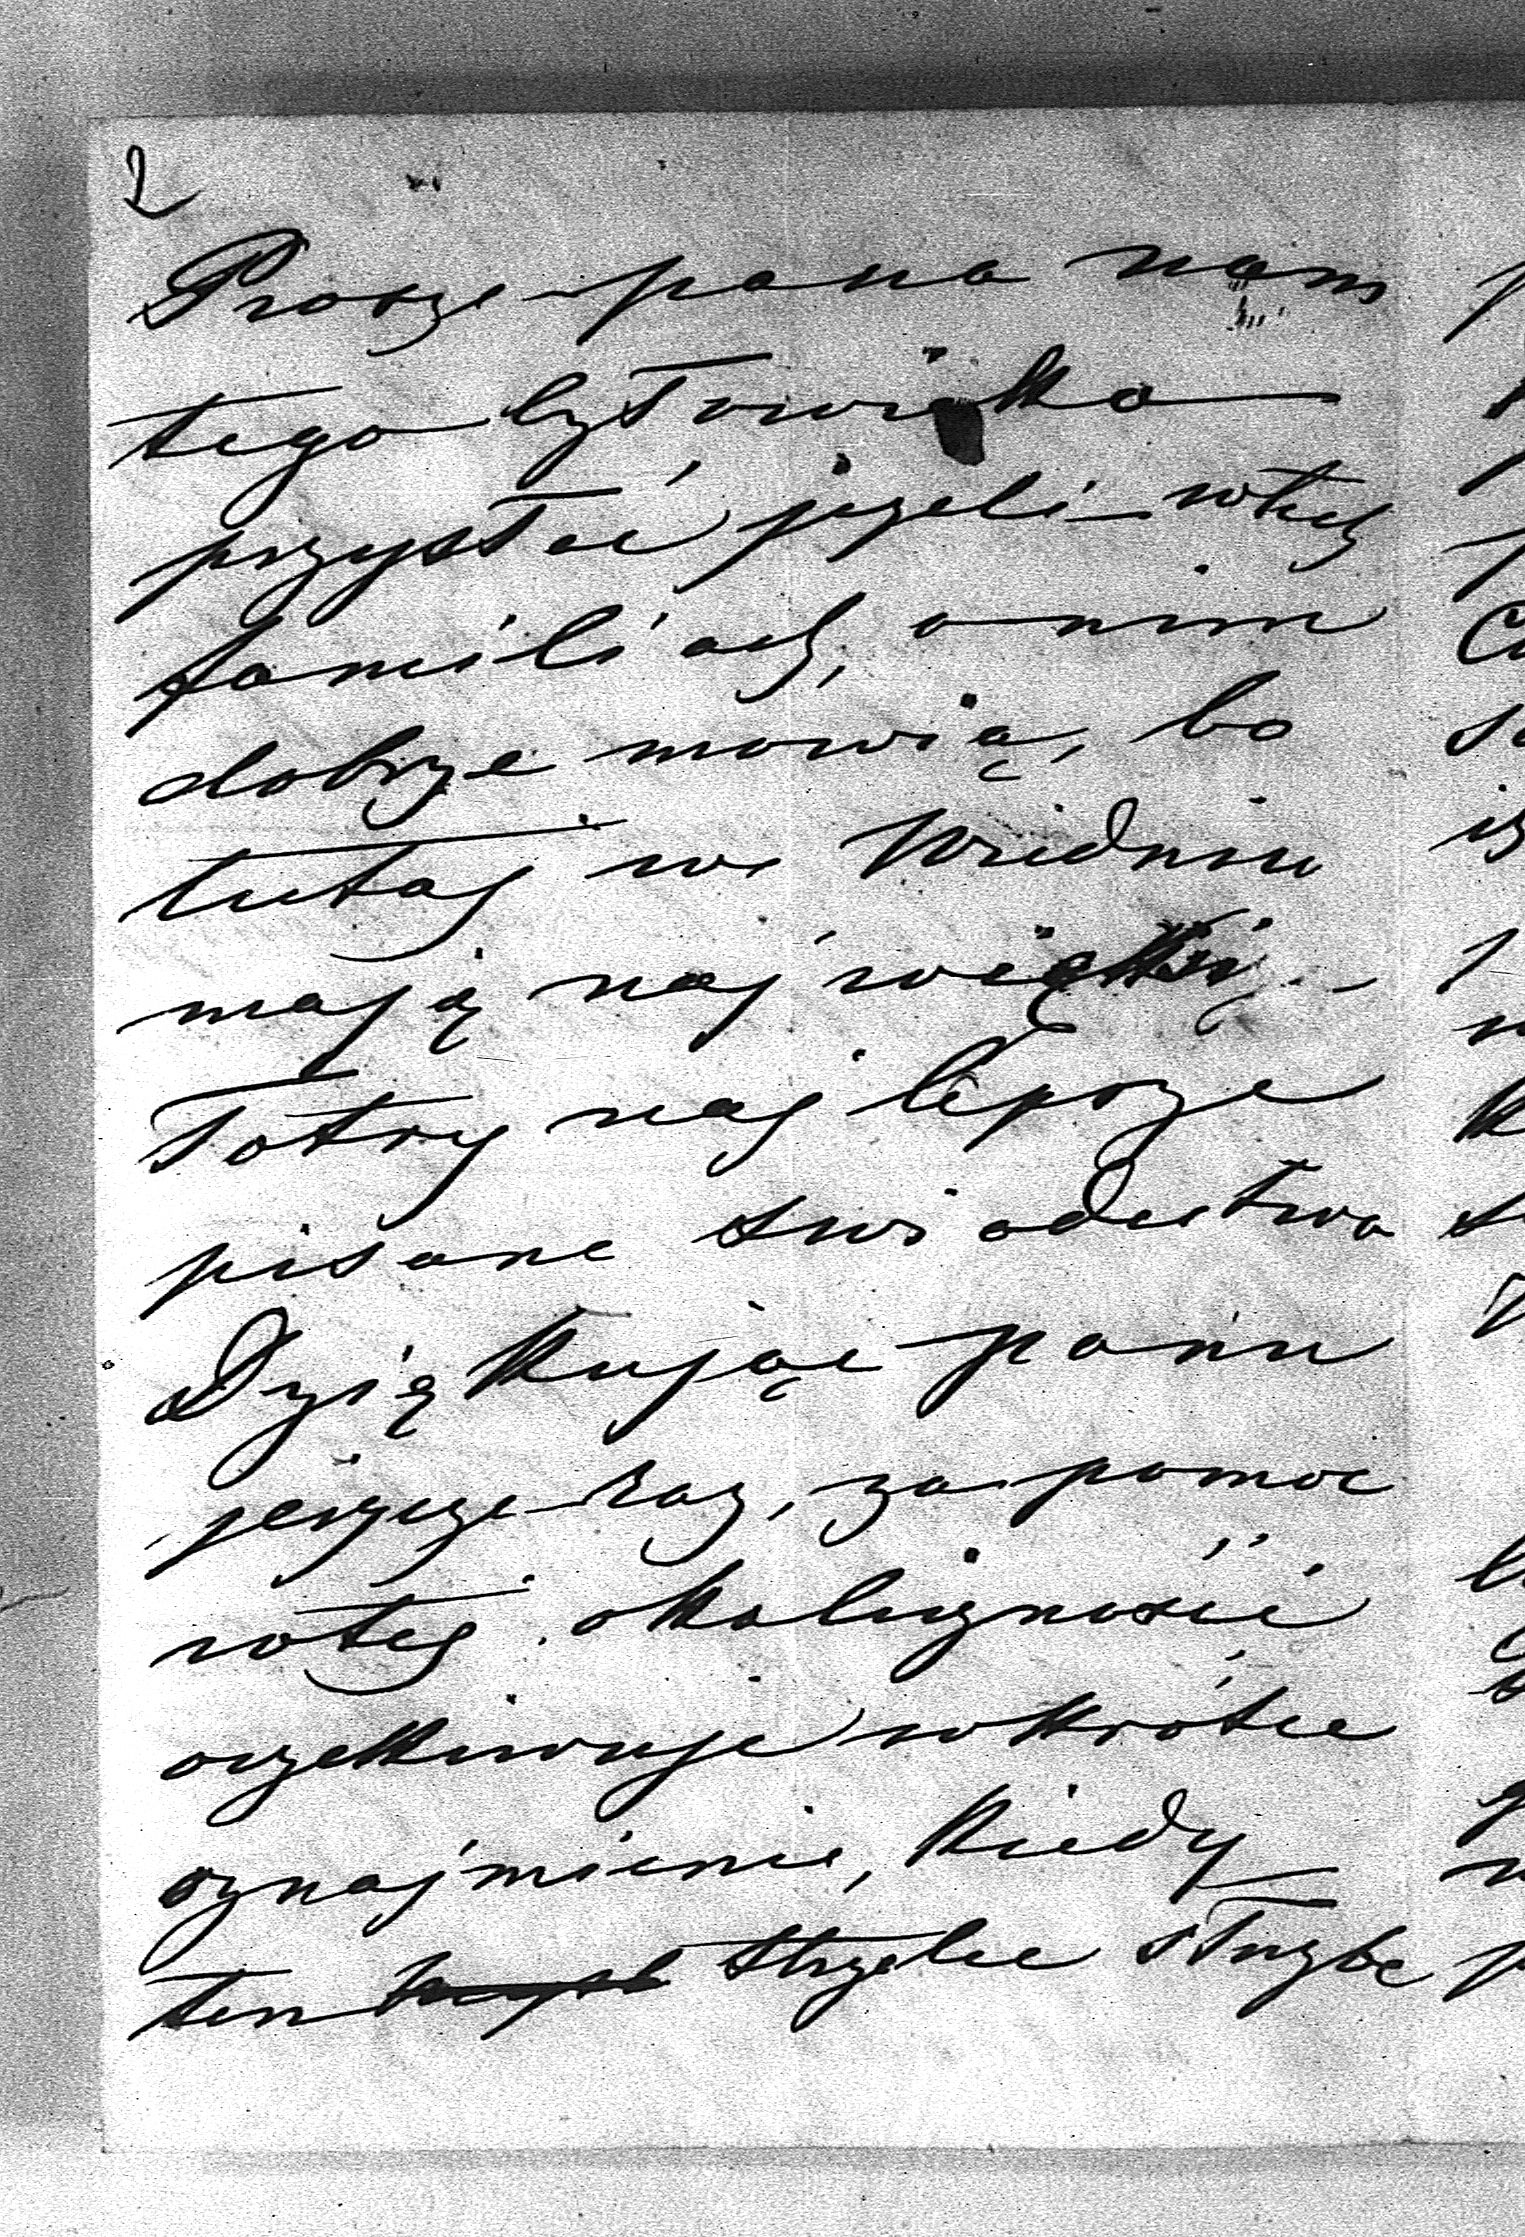 2
Prosze pana nam
tego człowieka
przysłać jezeli wtych
familiach, o nim
dobrze mowią, bo
tutaj we Wiedniu
mają naj więksi
łotry naj lepsze
pisane swiadectwa
Dziękując panu
jeszcze raz, za pomoc
wtej okoliczności
oczekiwuje wkrótce
oznajmienie, kiedy
ten strzelec służbe